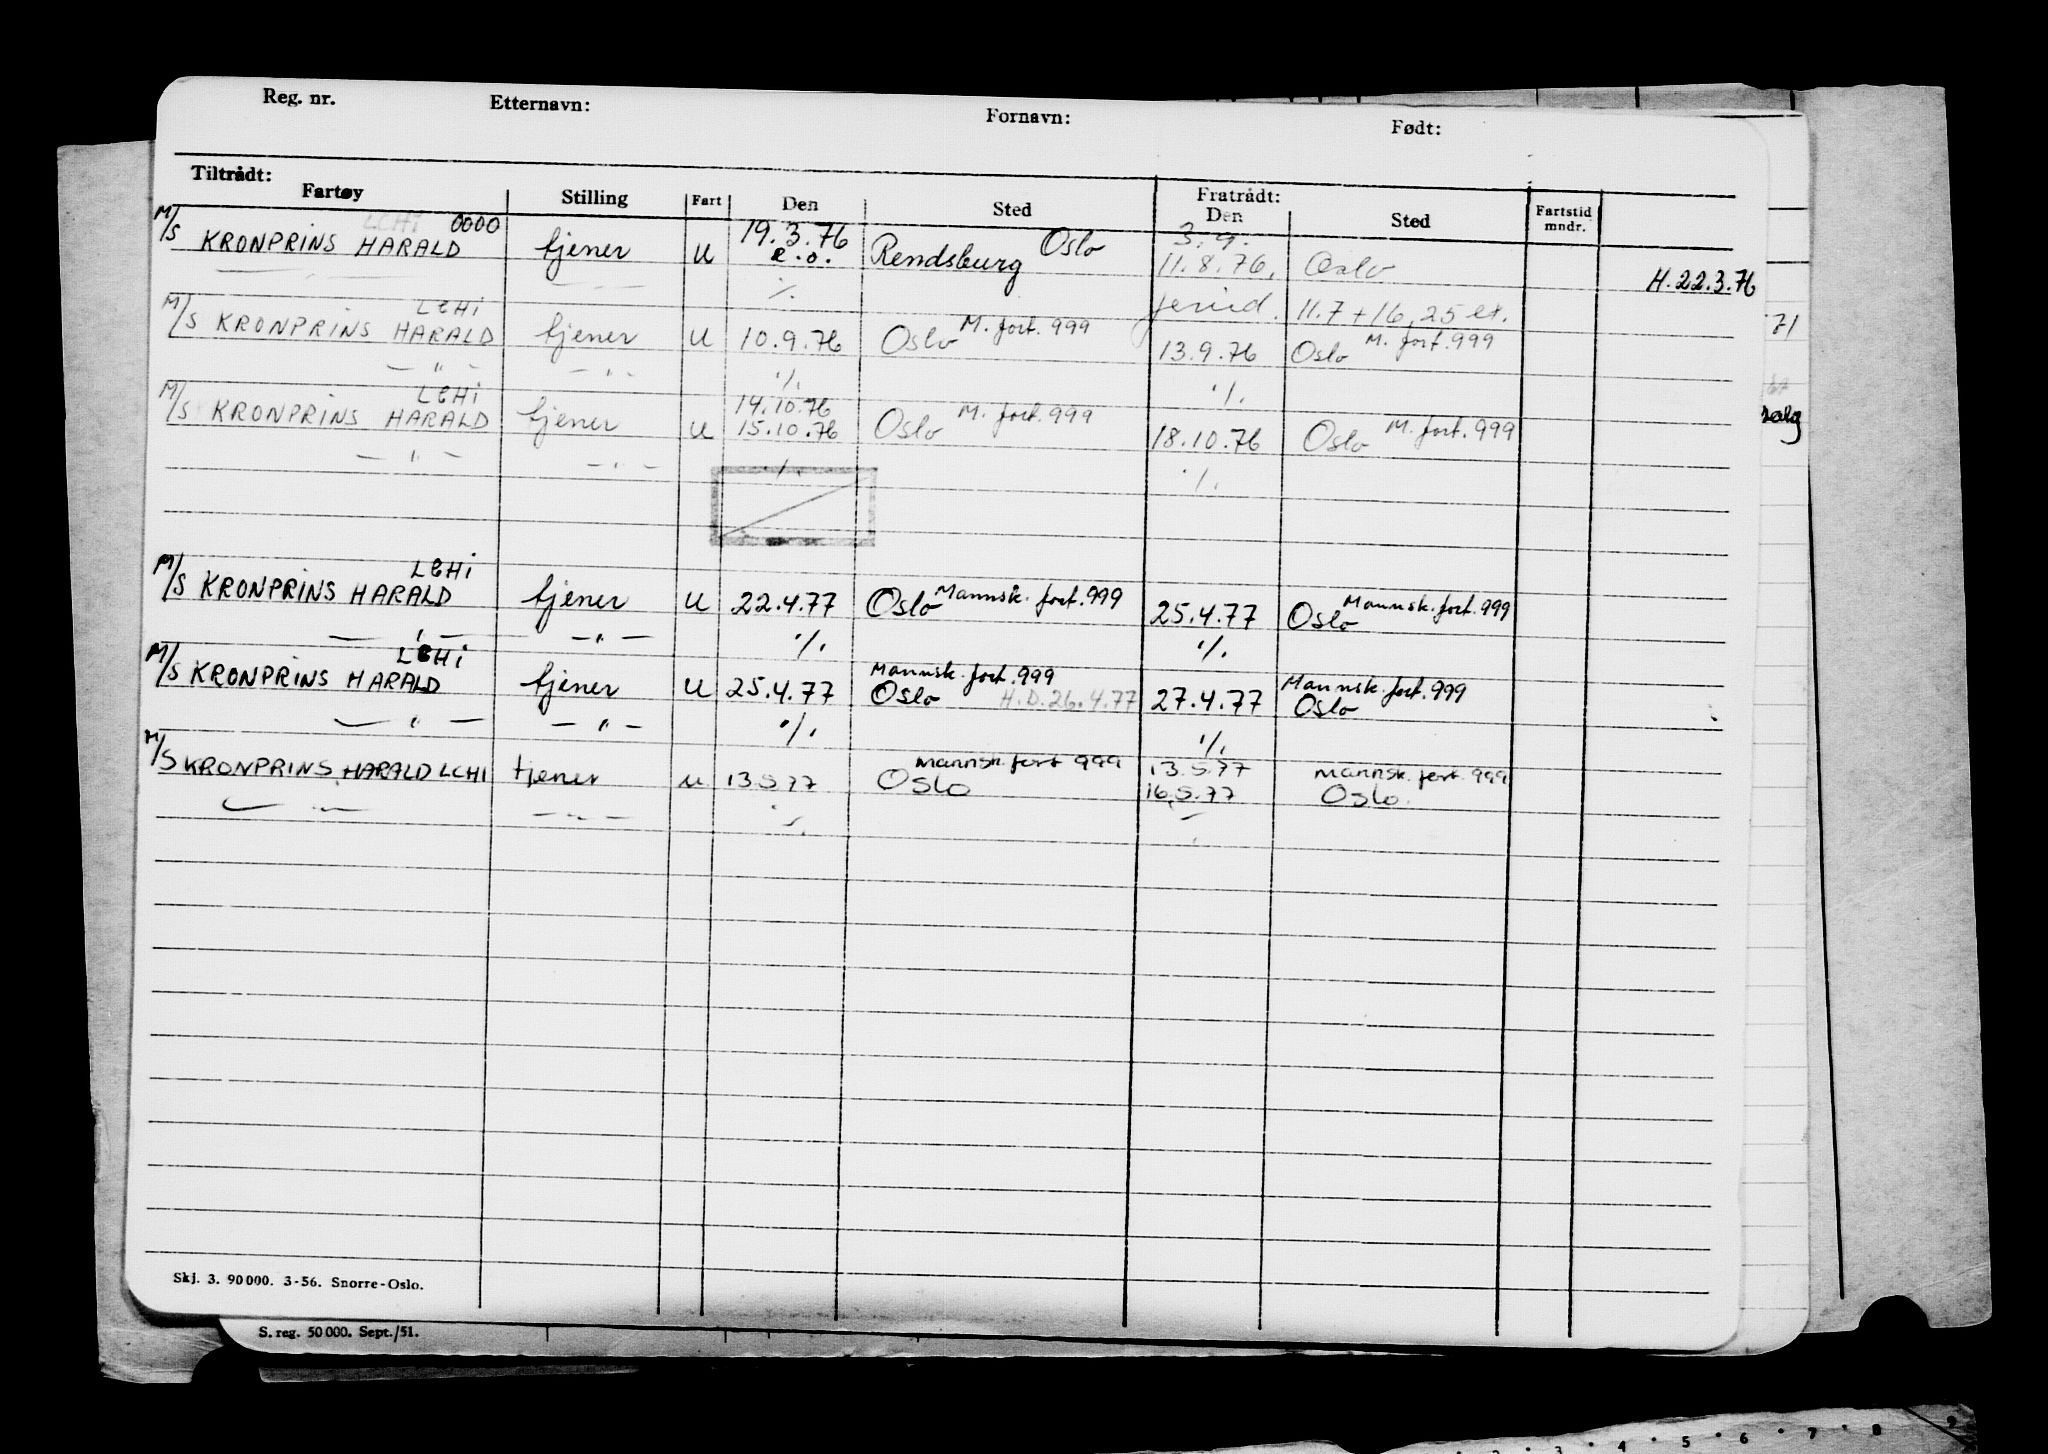 Reg. nr. Etternavn: Fornavn: Født:
Tiltrådt: Fratrådt:
Fartøy Stilling Fart Den Sted Den Sted Fartstid mndr.
LCHI 0000 19.3.76 Oslo 3.9.
M/S KRONPRINS HARALD tjener U e.o. Rendsburg 11.8.76, Oslo H.22.3.76
LCHI ./. 11.7 + 16, 25 et.
M/S KRONPRINS HARALD tjener U 10.9.76 Oslo M. fort. 999 13.9.76 Oslo M. fort. 999
— " — — " — ./. ./.
LCHI 14.10.76
M/S KRONPRINS HARALD tjener U 15.10.76 Oslo M. fort. 999 18.10.76 Oslo M. fort. 999
— " — — " — ./. ./.
LCHI
M/S KRONPRINS HARALD tjener U 22.4.77 Oslo Mannsk. fort. 999 25.4.77 Oslo Mannsk. fort. 999
— " — — " — ./. ./.
LCHI Mannsk. fort. 999 Mannsk. fort. 999
M/S KRONPRINS HARALD tjener U 25.4.77 Oslo H.D.26.4.77 27.4.77 Oslo
— " — — " — ./. ./.
mannsk. fort 999 13.5.77 mannsk. fort. 999
M/S KRONPRINS HARALD LCHI tjener u 13.5.77 Oslo 16.5.77 Oslo.
— " — — " — ./.
Skj. 3. 90 000. 3-56. Snorre-Oslo.
S. reg. 50 000. Sept./51.
71
3 4 5 6 7 8 9